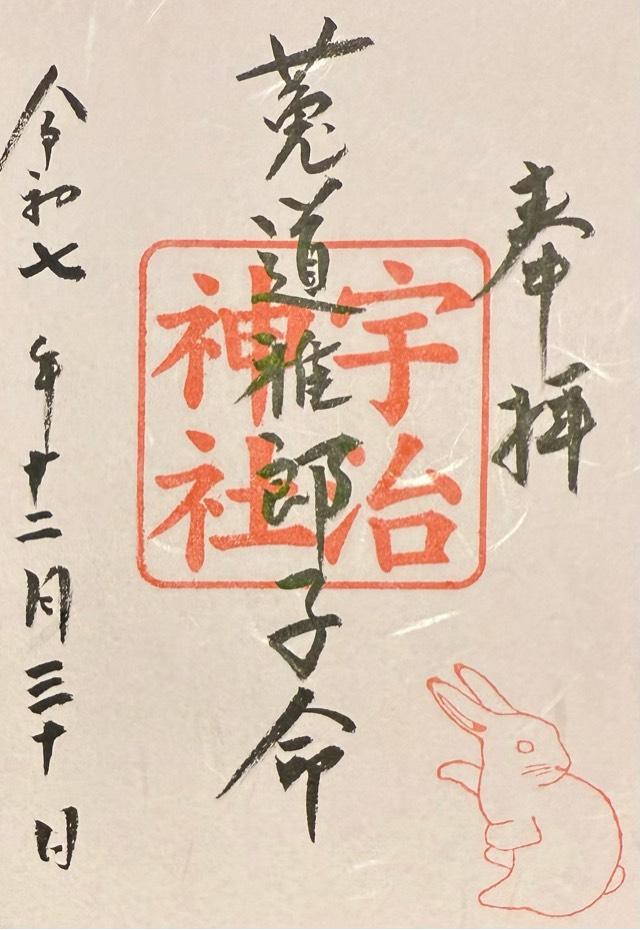 奉拝
菟道稚郎子命
宇治
神社
令和七年十二月三十日